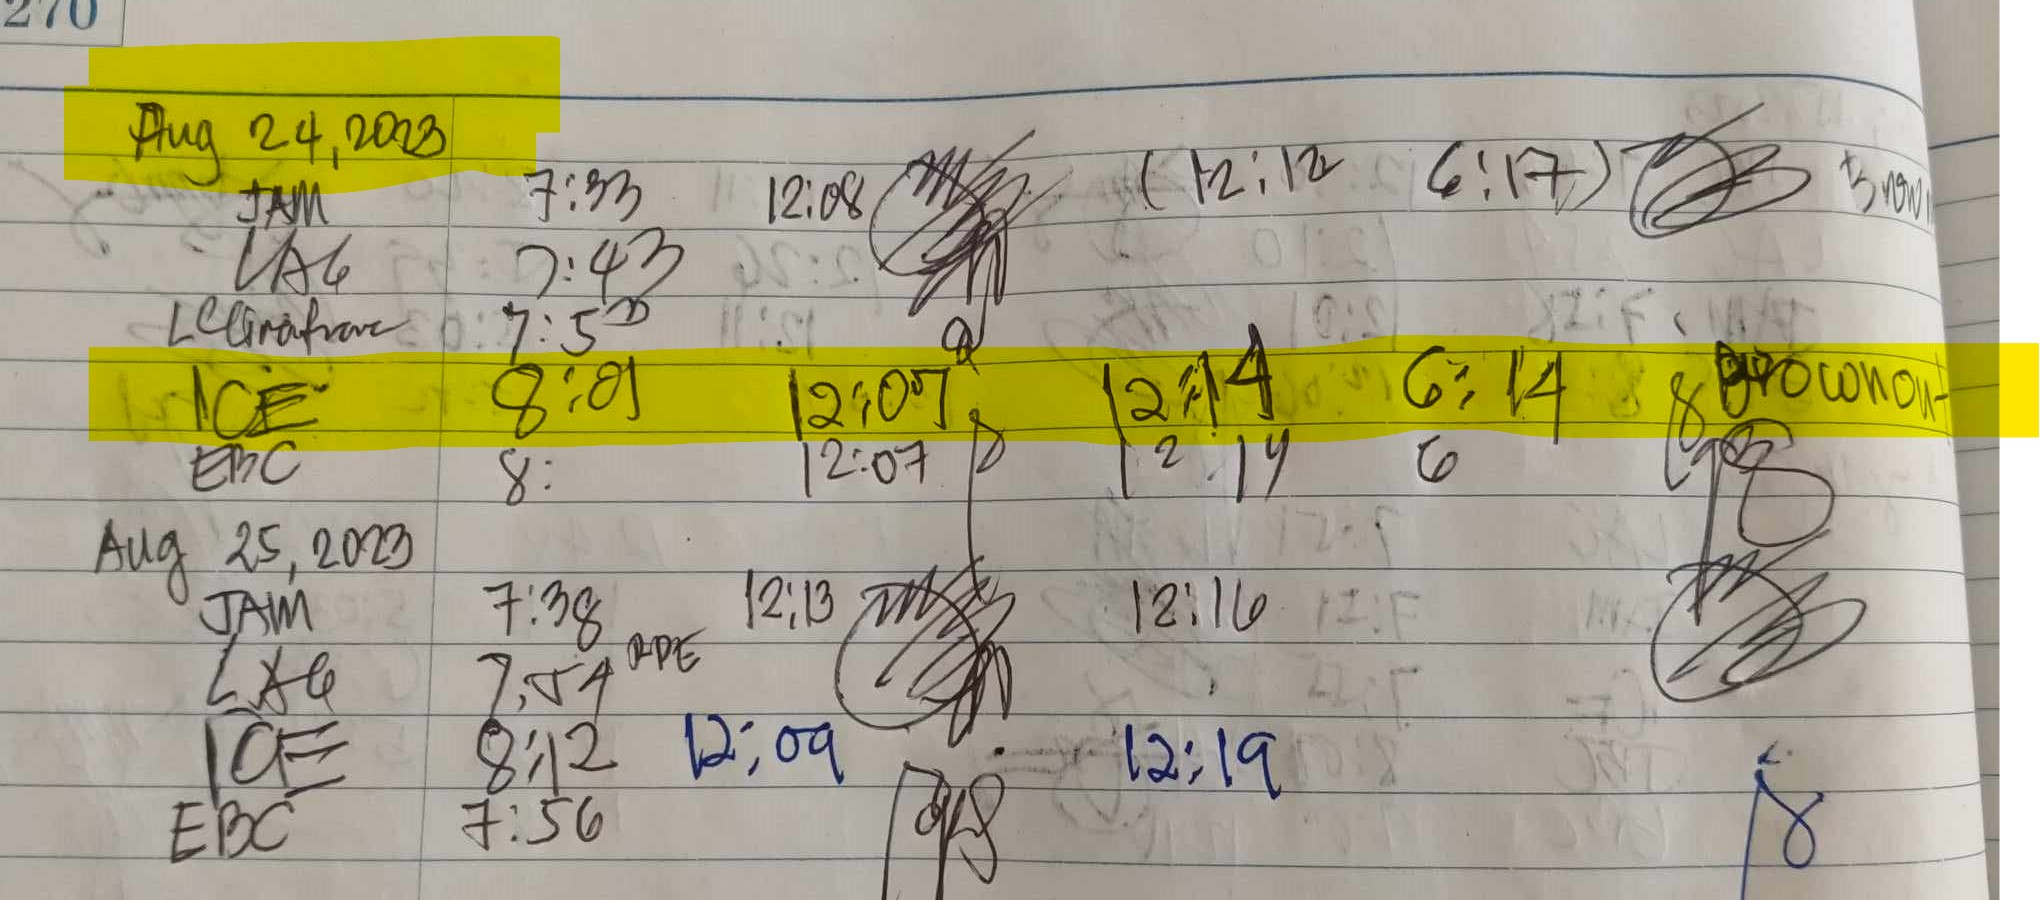 270
Aug 24, 2023
JAM 7:33 12:08 (12:12 6:17)
LAG 7:43
7:50
ICE 8:01 12:07 12:14 6:14 Brownout
EBC 8: 12:07 12 14 6
Aug 25, 2023
JAM 7:38 12:13 12:16
LAG 7:54 RPE
ICE 8:12 12:09 12:19
EBC 7:56